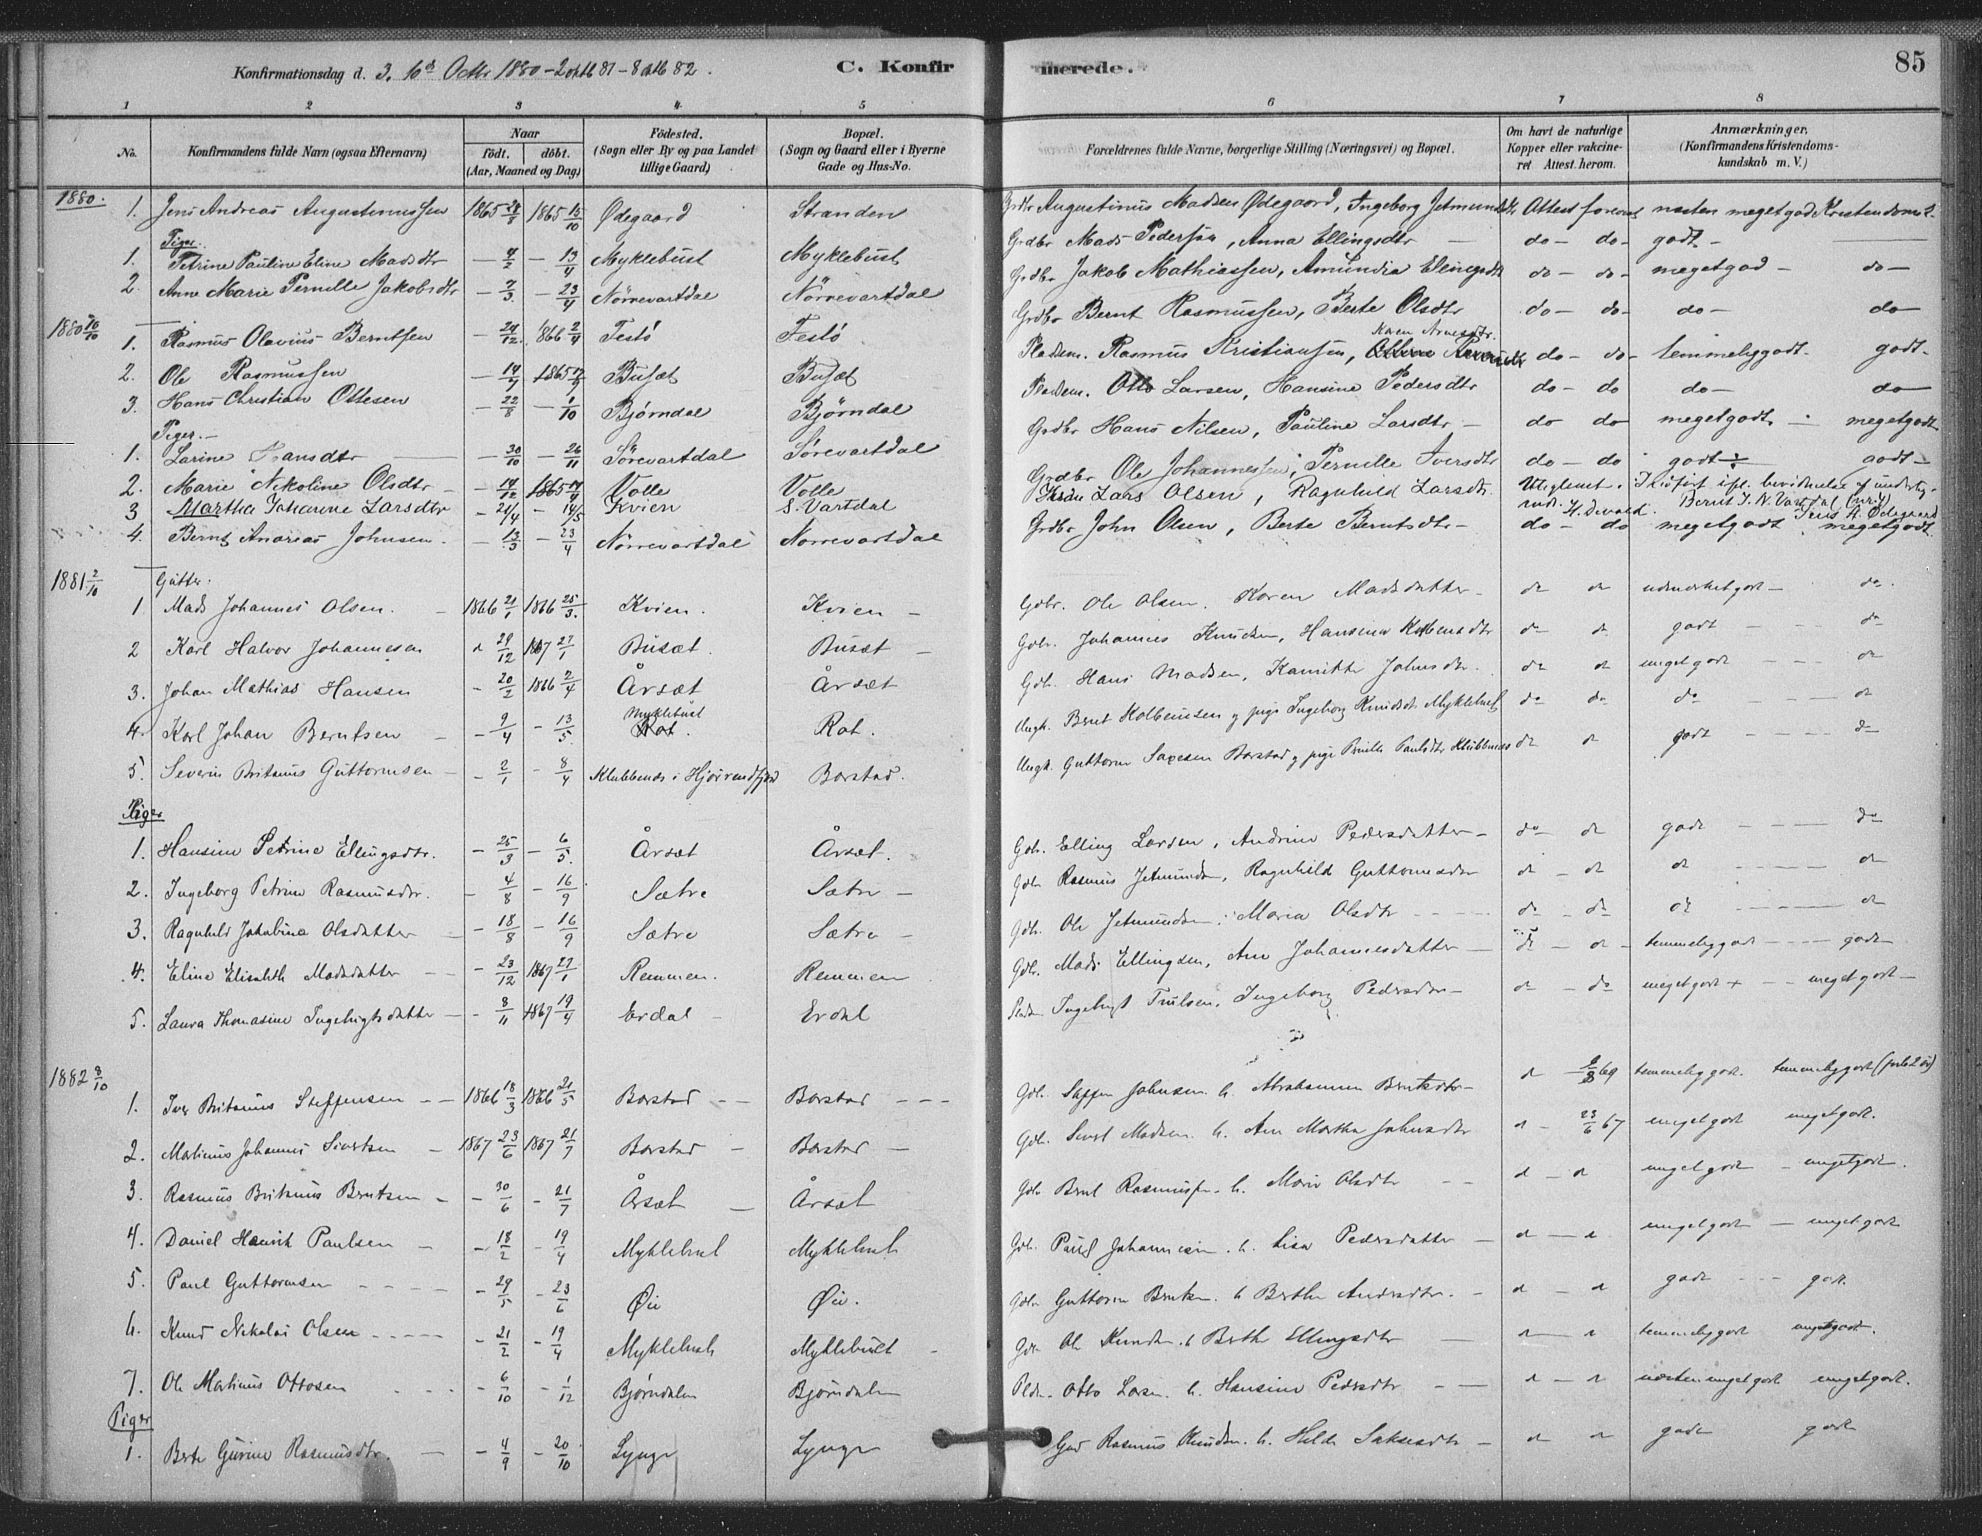 Konfirmationsdag d. 3. 10de Octbr 1880 - 2 oktb 81 - 8 oktb 82. C. Konfirmerede. 85
1 2 3 4 5 6 7 8
No. Konfirmandens fulde Navn (ogsaa Efternavn) Naar født. døbt. (Aar, Maaned og Dag) Fødested. (Sogn eller By og paa Landet tillige Gaard) Bopæl. (Sogn og Gaard eller i Byerne Gade og Hus-No. Forældrenes fulde Navne, borgerlige Stilling (Næringsvei) og Bopæl. Om havt de naturlige Kopper eller vakcineret Attest. herom. Anmærkninger. (Konfirmandens Kristendomskundskab m. V.)
1880. 1. Jens Andreas Augustinussen 1865 28/8 1865 15/10 Ødegaard Stranden Grdbr Augustinus Madsen Ødegaard, Ingeborg Jetmundsdtr Attest forevist nesten meget god Kristendomsk.
Piger.
1. Petrine Pauline Eline Madsdtr — 4/2 — 13/4 Myklebust Myklebust Grdbr Mads Pedersen, Anna Ellingsdtr — do — do — godt —
2. Anne Marie Pernille Jakobsdtr — 7/3 — 23/4 Nörrevartdal Nörrevartdal Grdbr Jakob Mathiassen, Amundia Elingsdtr do — do — meget god — do —
1880 10/10 1. Rasmus Olavius Berntsen — 24/12 1866 2/4 Festö Festö Grdbr Bernt Rasmussen, Berte Olsdtr do — do — do — do
2. Ole Rasmussen — 14/7 1865 Busæt Busæt Pladsm. Rasmus Kristiansen, Karen Arnesdtr. do — do — temmelig godt — godt —
3. Hans Christian Ottesen — 22/8 — 1/10 Bjørndal Björndal Pladsm. Otto Larsen, Hansine Pedersdtr do — do do — do
Piger. —
1. Larine Hansdtr — 30/10 — 26/11 Sörevartdal Sörevartdal Grdbr Hans Nilsen, Pauline Larsdtr — do do meget godt — meget godt
2. Marie Nikoline Olsdtr — 14/12 1865 Volle Volle Grdbr Ole Johannessen, Pernille Iversdtr do — do godt — godt —
3 Martha Johanne Larsdtr — 21/4 — 14/5 Kvien S. Vartdal Lars Olsen, Ragnhild Larsdtr.
4. Bernt Andreas Johnsen. — 13/3 — 23/4 Nörrevartdal Nörrevartdal Grdbr John Olsen, Berte Berntsdtr — do — do meget godt meget godt.
1881 2/10 Gutter.
1 Mads Johannes Olsen. — 1866 21/1 1866 25/3. Kvien. Kvien — Gdbr. Ole Olsen. Karen Madsdatter — do do udmærket godt — do.
2 Karl Halvor Johannesen 29/12 1867 27/1 Busæt. Busæt — Gdb. Johannes Knudsen, Hansine do do godt — do
3. Johan Mathias Hansen — 20/2 1866 2/4 Årsæt Årsæt Gdb. Hans Madsen, Johnsdtr. do do meget godt — do
4. Karl Johan Berntsen — 9/4 — 13/5. Myklebust Rot. Ungk. Bernt Kolbeinsen og pige Ingeborg Knudsdt Myklebust do do do — do
5. Severin Britanus Guttormsen — 2/1 — 8/4 Klubbenes i Hjörendfjord Borstad. Ungk. Guttorm Saxesen Borstad og pige Pernille Paulsdtr Klubbenes do do godt — do
Piger
1. Hansine Petrine Ellingsdtr. — 25/3 — 6/5. Årsæt Årsæt. Gdb. Elling Larsen, Andrine Pedersdatter — do — do godt — do
2. Ingeborg Petrine Rasmusdtr. — 4/8 — 16/9 Sætre Sætre — Gdb. Rasmus Jetmundsen, Ragnhild Guttormsdtr do — do do — do
3. Ragnhild Jakobine Olsdatter — 18/8 — 16/9 Sætre Sætre — Gdb. Ole Jetmundsen. Maria Olsdtr — do — do do — do
4. Eline Elisabeth Madsdatter — 23/12 1867 27/1 Remmen. Remmen Gdb. Mads Ellingsen, Ane Johannesdatter — do — do — temmelig godt — godt
5. Laura Thomasine Ingebrigtsdatter — 8/11 1867 19/4 Erdal Erdal Ingebrigt Trulsen, Ingeborg Pedersdtr — do — do meget godt + — meget godt —
1882 8/10
1. Iver Britanus Steffensen — 1866 18/3 1866 21/5 Borstad — Borstad — Gdb. Steffen Johnsen. h. Abrahamine Berntsdtr — do 9/8 69 temmelig godt temmelig godt
2. Martinus Johannes Sivertsen — 1867 23/6 1867 21/7 Borstad — Borstad — Gdb. Sivert Madsen. h. Ane Martha Johnsdtr do — 23/6 67 meget godt meget godt.
3. Rasmus Britanus Berntsen — 30/6 — 21/7 Årsæt — Årsæt Gdb Bernt Rasmussen. h. Marie Olsdtr — do — do meget godt — meget godt.
4. Daniel Henrik Paulsen — 18/2 — 19/4 Myklebust Myklebust Gdb. Paul Johannesen. h. Lisa Pedersdatter — do — do meget godt — meget godt
5. Paul Guttormsen — 29/5 — 23/6 Øie Øie. Gdb. Guttorm Berntsen. h Berthe Andersdtr. — do — do godt — godt.
6. Knud Nikolai Olsen — 21/2 — 19/4 Myklebust Myklebust — Gdb Ole Knudsen. h Berthe Ellingsdtr — do — do temmelig godt meget godt.
7. Ole Martinus Ottosen — 6/10 — 1/12 Bjørndalen Bjørndalen Pldm. Otto Larsen. h. Hansine Pedersdtr — do — do næsten meget godt meget godt.
Piger
1. Berte Gurine Rasmusdtr. — 4/9 — 20/10 Lynge Lynge Rasmus Knudsen. h. Hilde Saksesdtr — do do godt godt